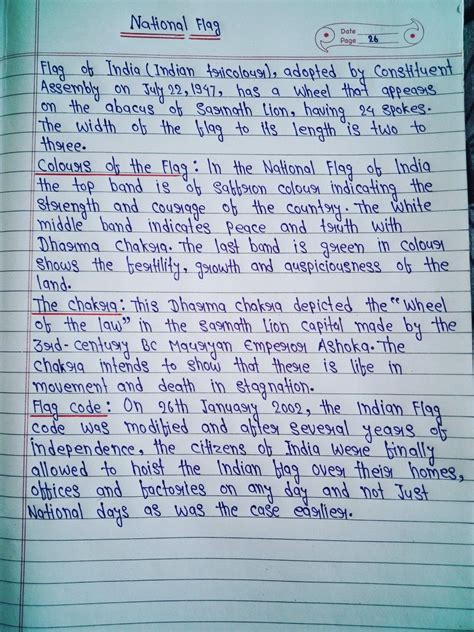 National Flag
Date
Page 26
Flag of India (Indian tricolour), adopted by Constituent
Assembly on July 22, 1947, has a wheel that appears
on the abacus of Sarnath Lion, having 24 spokes.
The width of the flag to its length is two to
three.
Colours of the Flag: In the National Flag of India
the top band is of Saffron colour indicating the
strength and courage of the country. The white
middle band indicates peace and truth with
Dharma Chakra. The last band is green in colour
shows the fertility, growth and auspiciousness of the
land.
The chakra: This Dharma chakra depicted the "wheel
of the law" in the Sarnath Lion capital made by the
3rd-century BC Mauryan Emperor Ashoka. The
chakra intends to show that there is life in
movement and death in stagnation.
Flag code: On 26th January 2002, the Indian Flag
code was modified and after several years of
independence, the citizens of India were finally
allowed to hoist the Indian flag over their homes,
offices and factories on any day and not Just
National days as was the case earlier.